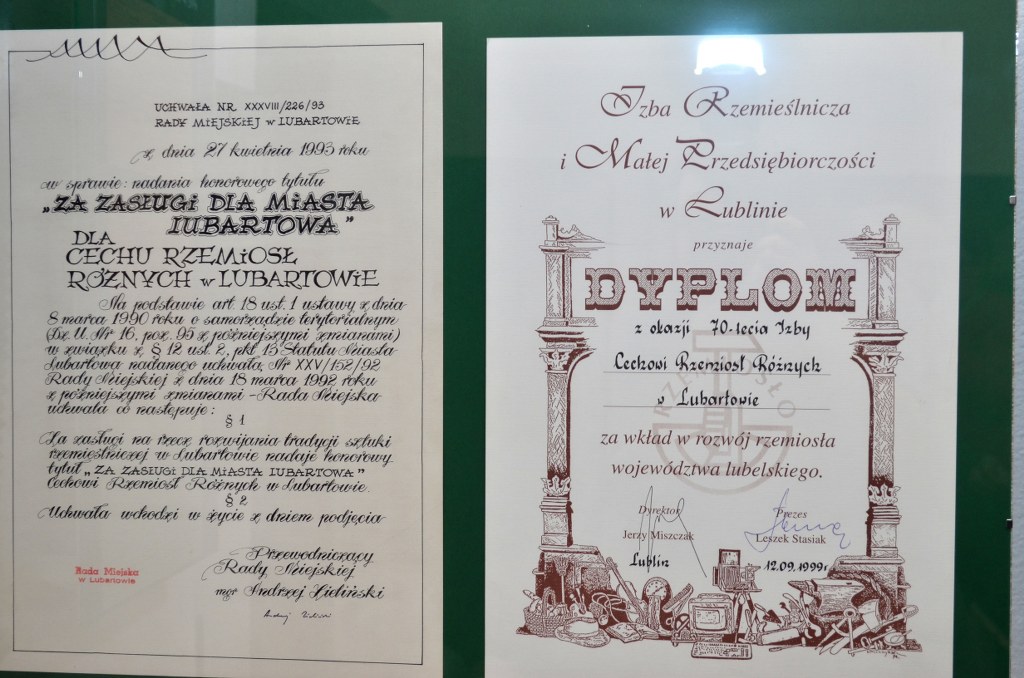 UCHWAŁA NR XXXVIII/226/93
RADY MIEJSKIEJ w LUBARTOWIE
z dnia 27 kwietnia 1993 roku
w sprawie: nadania honorowego tytułu
„ZA ZASŁUGI DLA MIASTA
LUBARTOWA"
DLA
CECHU RZEMIOSŁ
RÓŻNYCH w LUBARTOWIE
Na podstawie art. 18 ust. 1 ustawy z dnia
8 marca 1990 roku o samorządzie terytorialnym
(Dz. U. Nr 16, poz. 95 z późniejszymi zmianami)
w związku z § 12 ust. 2, pkt 15 Statutu Miasta
Lubartowa nadanego uchwałą Nr XXV/152/92
Rady Miejskiej z dnia 18 marca 1992 roku
z późniejszymi zmianami - Rada Miejska
uchwala co następuje:
§ 1
Za zasługi na rzecz rozwijania tradycji sztuki
rzemieślniczej w Lubartowie nadaje honorowy
tytuł „ZA ZASŁUGI DLA MIASTA LUBARTOWA"
Cechowi Rzemiosł Różnych w Lubartowie.
§ 2
Uchwała wchodzi w życie z dniem podjęcia
Przewodniczący
Rady Miejskiej
mgr Andrzej Zieliński
Rada Miejska
w Lubartowie
Izba Rzemieślnicza
i Małej Przedsiębiorczości
w Lublinie
przyznaje
DYPLOM
z okazji 70-lecia Izby
Cechowi Rzemiosł Różnych
w Lubartowie
RZEMIOSŁO
za wkład w rozwój rzemiosła
województwa lubelskiego.
Dyrektor Prezes
Jerzy Miszczak Leszek Stasiak
Lublin 12.09.1999r